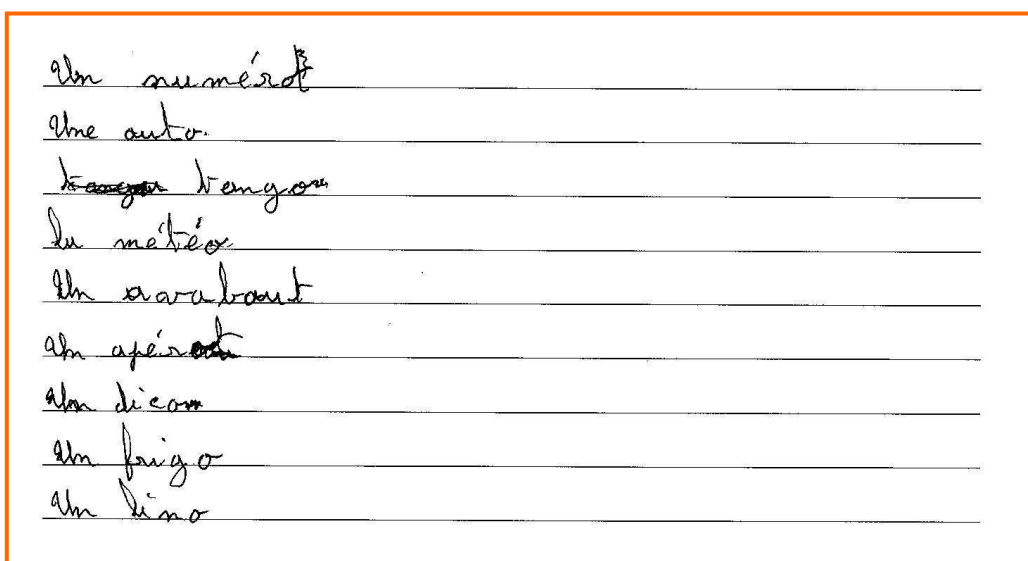 Un numérot
Une auto.
tango
la météo
Un
Un apérot
Un dicom
Un frigo
Un lino